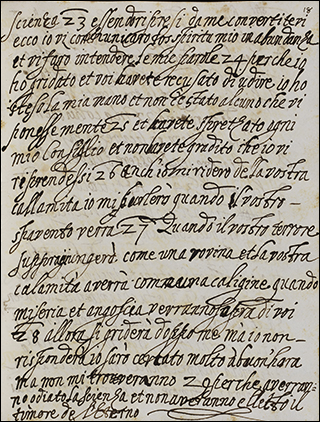 18
scienza 23 essendovi se si da me convertiteri
ecco io vi comunicaro lo spirito mio in abundanza
et vi faro intendere le mie parole 24 perche io
ho gridato et voi havete recusato di udire io ho
steso la mia mano et non è stato alcuno che vi
ponesse mente 25 et havete sprezzato ogni
mio consiglio et non havete gradito che io vi
riprendessi 26 anch io mi ridero della vostra
callamita io mi burlerò quando il vostro
spavento verra 27 Quando il vostro terrore
sopragiungerà come una rovina et la vostra
calamità averrà come una caligine quando
miseria et angoscia verranno sopra di voi
28 allora si griderà doppo me ma io non
rispondero io saro cercato molto a buon hora
ma non mi troveranno 29 perche averan
no odiato la scienza et non averanno eletto il
timore de